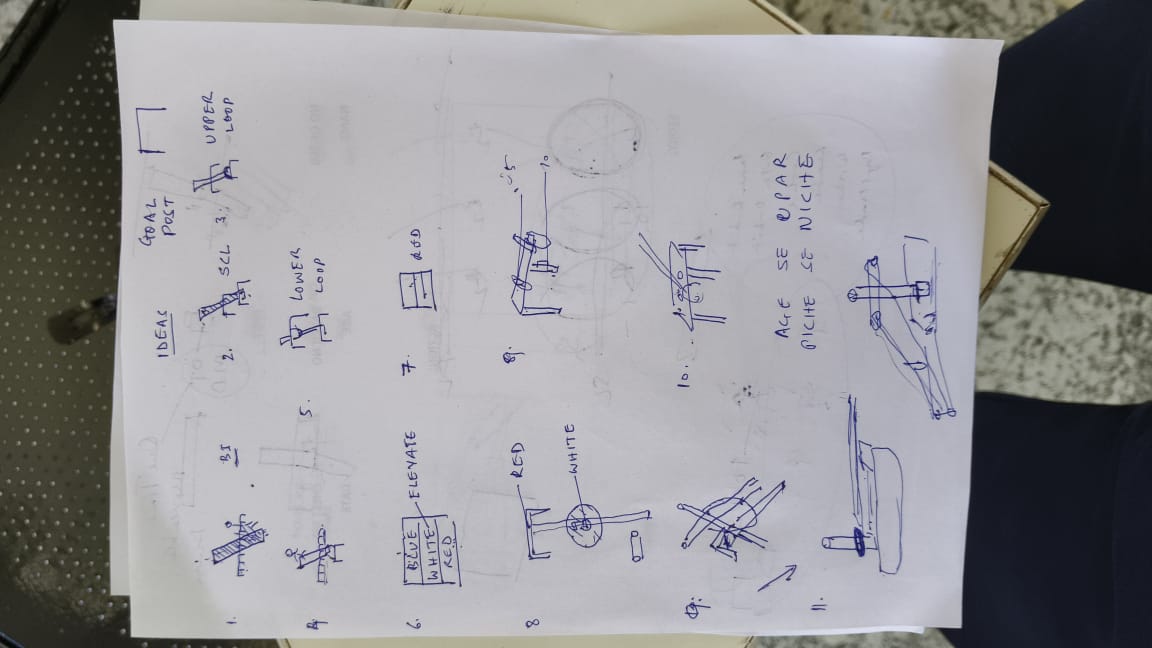 IDEAS
GOAL
POST
1.
BI
2.
SCL
3.
UPPER
LOOP
4.
5.
LOWER
LOOP
6.
BLUE
WHITE
RED
ELEVATE
7.
ROD
8
RED
WHITE
9.
10
10.
AGE SE UPAR
PICHE SE NICHE
11.